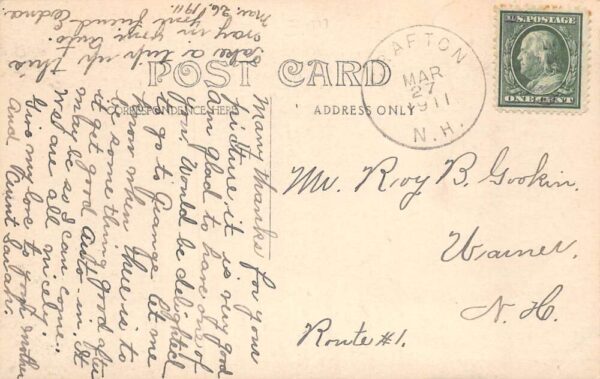 POST CARD
CORRESPONDENCE HERE
ADDRESS ONLY
GRAFTON
MAR
27
1911
N.H.
U.S. POSTAGE
ONE CENT
Mr. Roy B. Gookin.
Warner,
N. H.
Route #1.
Many thanks for your
picture, it is very good
Am glad to have one of
you. Would be delighted
to go to Grange let me
know when there is to
be something good after
it get good auto-in. It
may be as I can come.
We are all nicely.
Give my love to your mother
And Aunt Sarah.
Take a trip up this
way in your auto.
Your friend
Mar. 26/1911. Edna.